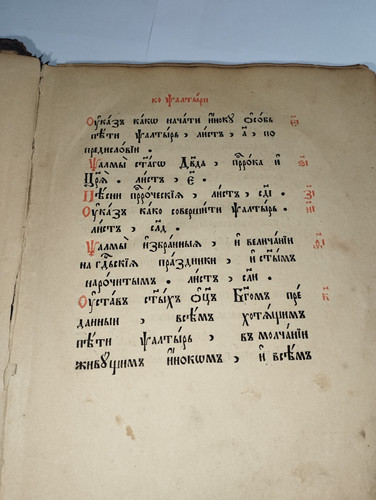 ко ѱалты́ри
Оу҆ка́зъ ка́кѡ нача́ти и҆́ноку ѻ҆со́бь
пѣ́ти ѱалты́рь, ли́стъ, а҃, по
предисло́вїи.
Ѱалмы̀ ст҃а́гѡ дв҃да, прⷪ҇ро́ка и҆
цр҃ѧ̀. ли́стъ, є҃.
Пѣ́сни прⷪ҇ро́ческїѧ, ли́стъ,
Оу҆ка́зъ ка́ко соверши́ти ѱалты́рь.
ли́стъ,
Ѱалмы̀ и҆збра́нныѧ, и҆ велича́нїи
на гдⷭ҇ьскїѧ пра́здники, и҆ ст҃ы́мъ
наро́читымъ. ли́стъ,
Оу҆ста́въ ст҃ы́хъ ѻ҆ц҃ъ бг҃омъ пре́
данныи, всѣ́мъ хотѧ́щимъ
пѣ́ти ѱалты́рь, въ молча́нїи
живꙋ́щимъ и҆́нокѡмъ, и҆ всѣ́мъ